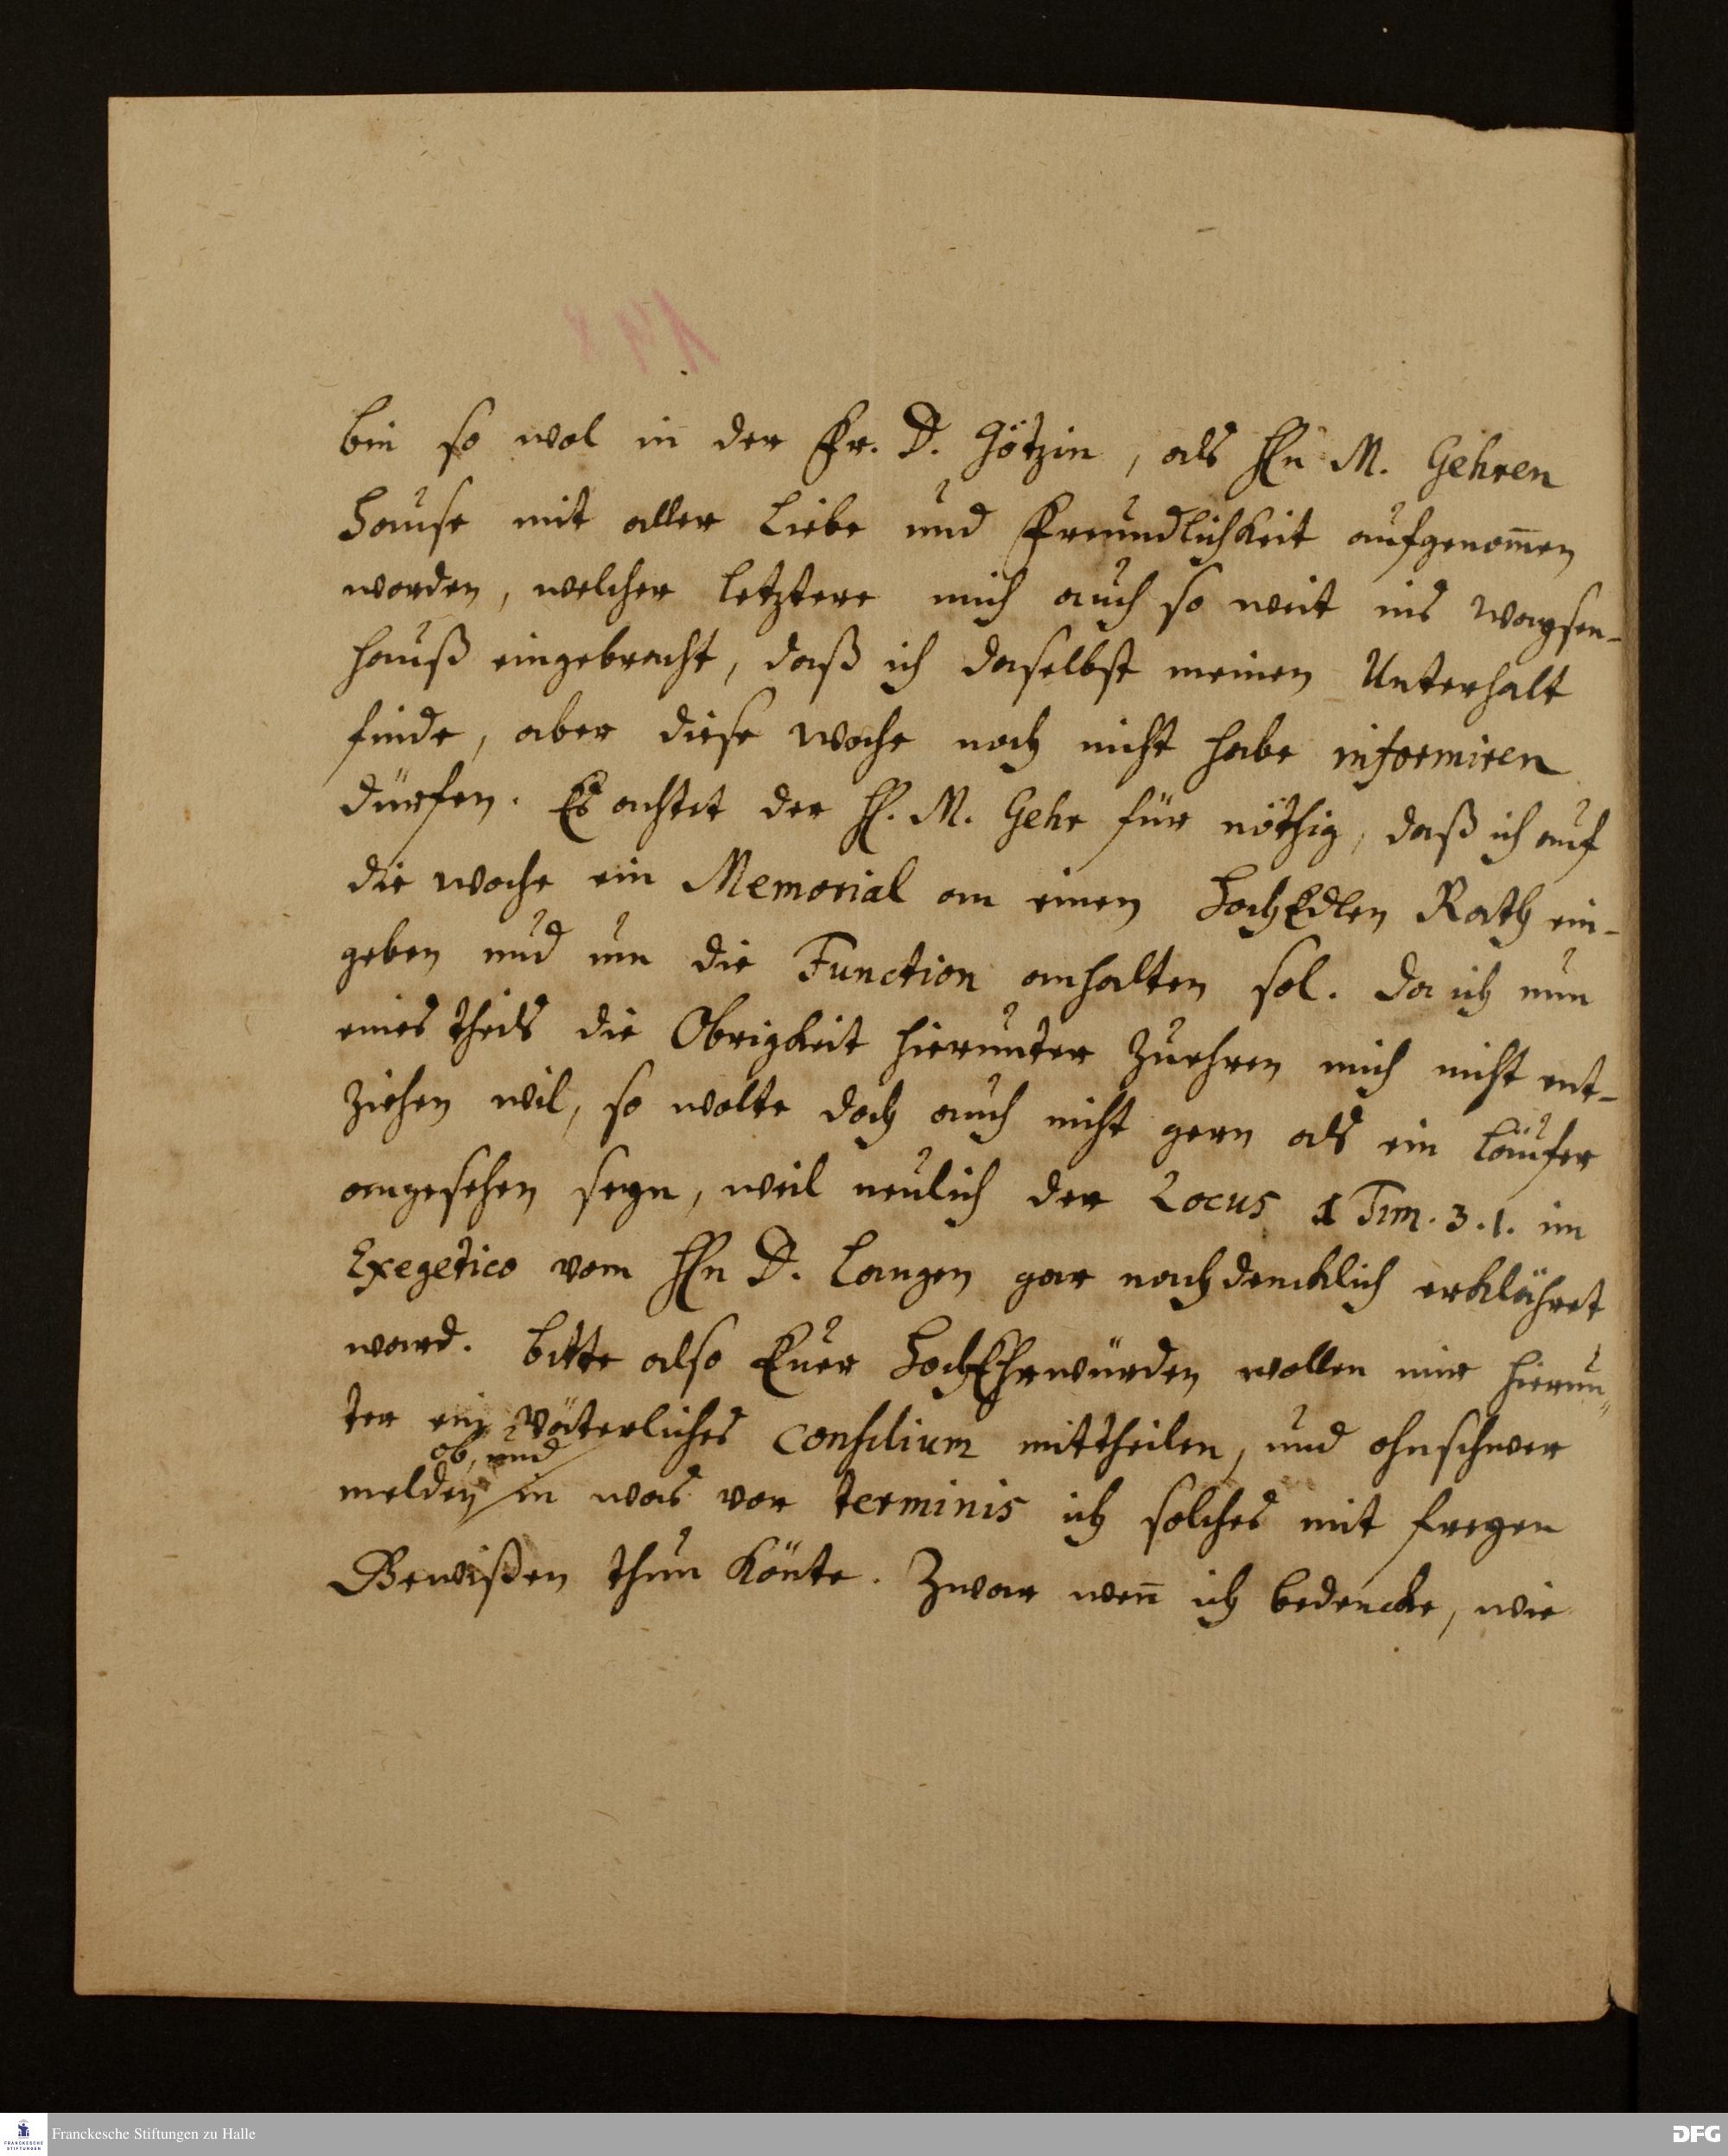 bin so wol in der Fr. D. Götzin, als Hn M. Gehren
Hause mit aller Liebe und Freundlichkeit aufgenom̅en
worden, welcher letztere mich auch so weit ins Waysen-
hauß eingebracht, daß ich daselbst meinen Unterhalt
finde, aber diese Woche noch nicht habe informiren
dürfen. Es achtet der H. M. Gehr für nöthig, daß ich auf
die Woche ein Memorial an einen HochEdlen Rath ein-
geben und um die Function anhalten sol. Da ich nun
eines theils die Obrigkeit hierunter zuehren mich nicht ent-
ziehen wil, so wolte doch auch nicht gern als ein Läufer
angesehen seyn, weil neulich der Locus 1 Tim. 3.1. im
Exegetico vom Hn D. Langen gar nachdencklich erklähret
ward. Bitte also Euer HochEhrwürden wollen mir hierun-
ter ein Väterliches Consilium mittheilen, und ohnschwer
ob, und
melden in was vor terminis ich solches mit freyen
Gewißen thun könte. Zwar wen̅ ich bedencke, wie
Franckesche Stiftungen zu Halle
FRANCKESCHE STIFTUNGEN
DFG